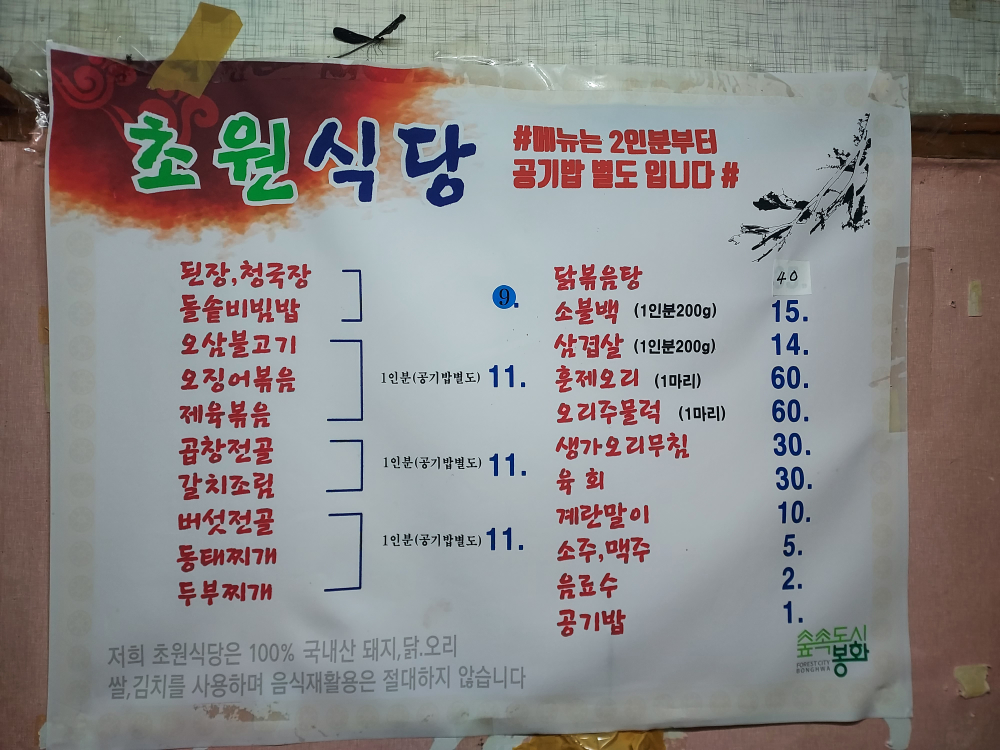 초원식당
#메뉴는 2인분부터
공기밥 별도 입니다 #
된장,청국장
돌솥비빔밥
9.
오삼불고기
오징어볶음
제육볶음
1인분(공기밥별도) 11.
곱창전골
갈치조림
1인분(공기밥별도) 11.
버섯전골
동태찌개
두부찌개
1인분(공기밥별도) 11.
닭볶음탕 40
소불백 (1인분200g) 15.
삼겹살 (1인분200g) 14.
훈제오리 (1마리) 60.
오리주물럭 (1마리) 60.
생가오리무침 30.
육회 30.
계란말이 10.
소주,맥주 5.
음료수 2.
공기밥 1.
저희 초원식당은 100% 국내산 돼지,닭.오리
쌀,김치를 사용하며 음식재활용은 절대하지 않습니다
숲속도시
봉화
FOREST CITY
BONGHWA